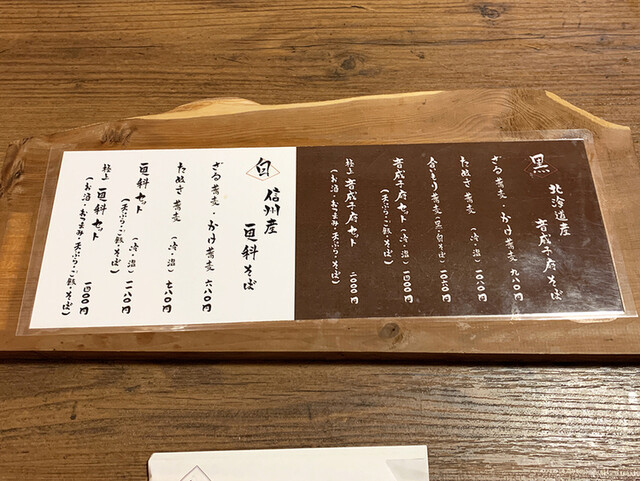 黒 北海道産
音威子府そば
ざる蕎麦・かけ蕎麦 九八〇円
たぬき蕎麦 (冷・温) 一〇八〇円
合もり蕎麦(黒・白そば) 一〇六〇円
音威子府セット (冷・温)
(天ぷら・ご飯・そば)
極上 音威子府セット 二〇〇〇円
(お酒・お刺身・天ぷら・ご飯・そば)
白 信州産
更科そば
ざる蕎麦・かけ蕎麦 六八〇円
たぬき蕎麦 (冷・温) 七八〇円
更科セット (冷・温) 一二八〇円
(天ぷら・ご飯・そば)
極上 更科セット
(お酒・お刺身・天ぷら・ご飯・そば)